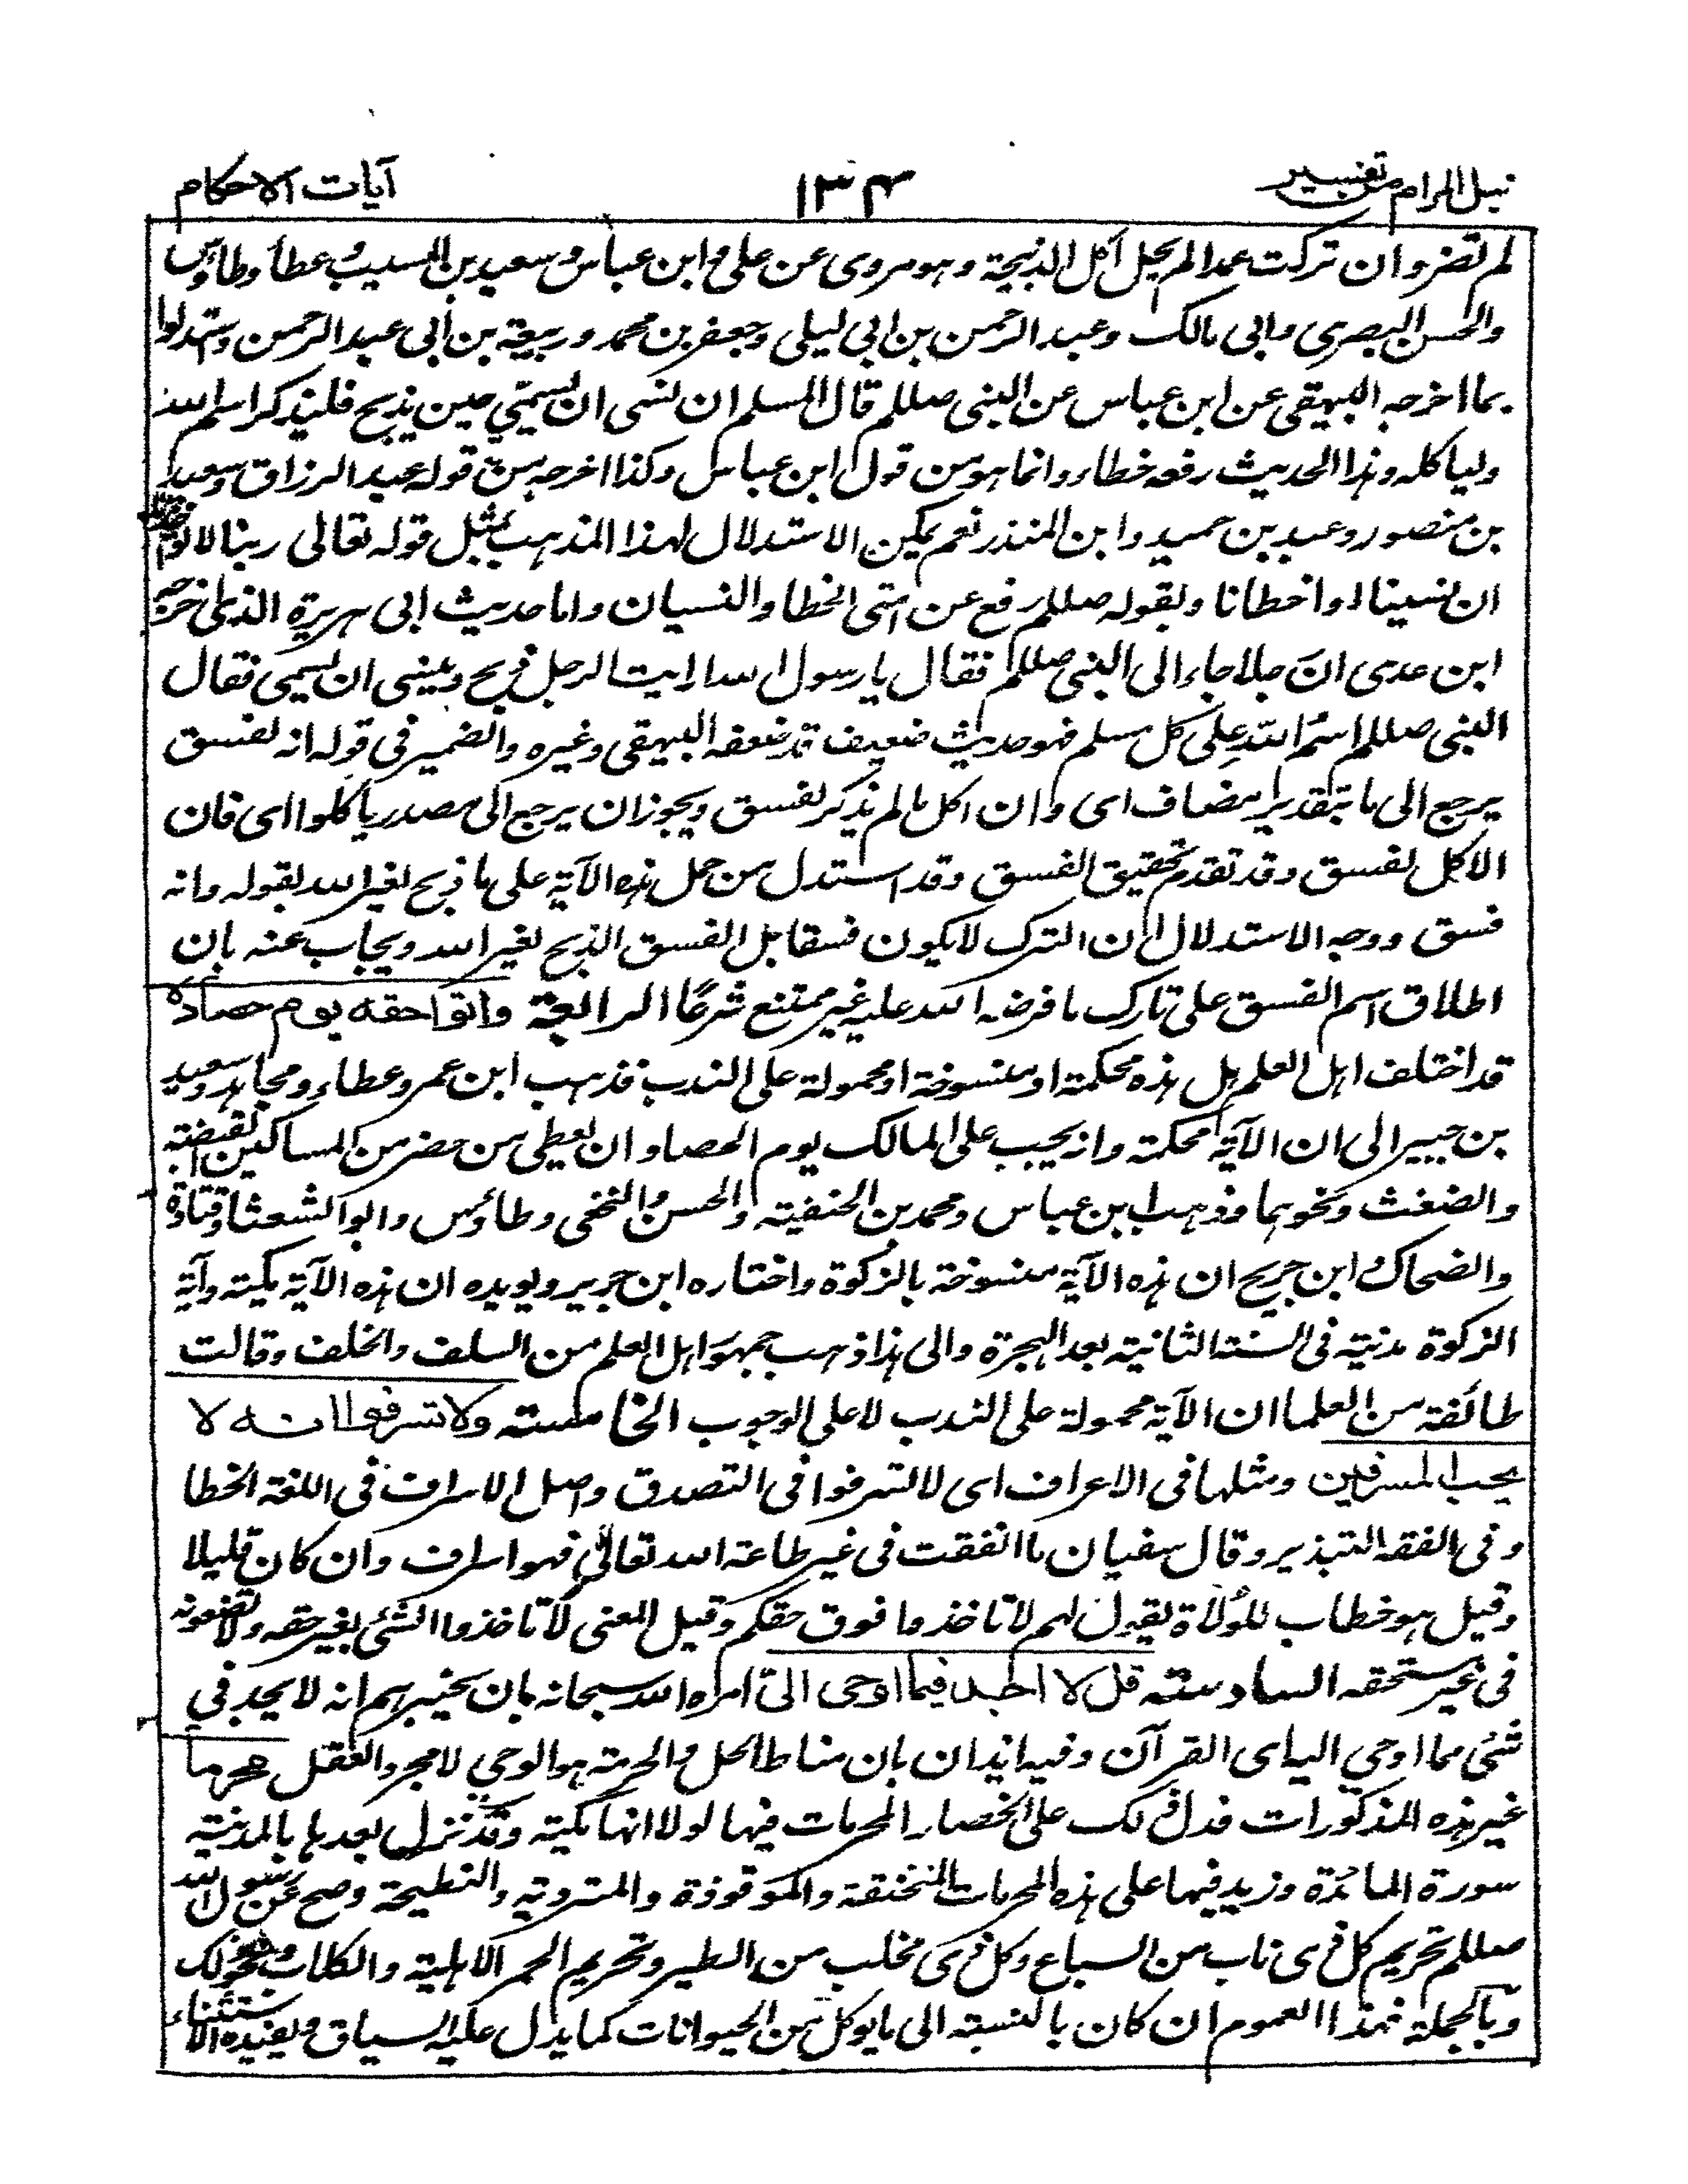 نيل المرام من تفسير ١٣٤ آيات الاحكام
لم تضر وان تركت عمدا لم يحل اكل الذبيحة وهو مروى عن على وابن عباس وسعيد بن المسيب وعطا وطاؤس
والحسن البصرى وابى مالك وعبد الرحمن بن ابى ليلى وجعفر بن محمد وربيعة بن ابى عبد الرحمن واستدلوا
بما اخرجه البيهقى عن ابن عباس عن النبى صللم قال المسلم ان نسى ان يسمى حين يذبح فليذكر اسم الله
ولياكله وهذا الحديث رفعه خطاء وانما هو من قول ابن عباس وكذا اخرجه من قوله عبد الرزاق وسعيد
بن منصور وعبد بن حميد وابن المنذر نعم يمكن الاستدلال لهذا المذهب بمثل قوله تعالى ربنا لا تؤاخذنا
ان نسينا او اخطانا وبقوله صللم رفع عن امتى الخطا والنسيان واما حديث ابى هريرة الذى اخرجه
ابن عدى ان رجلا جاء الى النبى صللم فقال يا رسول الله ارايت الرجل يذبح وينسى ان يسمى فقال
النبى صللم اسم الله على كل مسلم فهو حديث ضعيف قد ضعفه البيهقى وغيره والضمير فى قوله انه لفسق
يرجع الى ما بتقدير مضاف اى وان اكل ما لم يذكر لفسق ويجوز ان يرجع الى مصدر ياكلوا اى فان
الاكل لفسق وقد تقدم تحقيق الفسق وقد استدل من حمل هذه الآية على ما ذبح لغير الله بقوله وانه
فسق ووجه الاستدلال ان الترك لا يكون فسقا بل الفسق الذبح لغير الله ويجاب عنه بان
اطلاق اسم الفسق على تارك ما فرضه الله عليه غير ممتنع شرعًا الرابعة واتوا حقه يوم حصاده
قد اختلف اهل العلم هل هذه محكمة او منسوخة او محمولة على الندب فذهب ابن عمر وعطاء ومجاهد وسعيد
بن جبير الى ان الآية محكمة وانه يجب على المالك يوم الحصاد ان يعطى من حضر من المساكين القبضة
والضغث ونحوهما وذهب ابن عباس ومحمد بن الحنفية والحسن والنخعى وطاؤس وابو الشعثا وقتادة
والضحاك وابن جريح ان هذه الآية منسوخة بالزكوة واختاره ابن جرير ويويده ان هذه الآية مكية وآية
الزكوة مدنية فى السنة الثانية بعد الهجرة والى هذا ذهب جمهور اهل العلم من السلف والخلف وقالت
طائفة من العلما ان الآية محمولة على الندب لا على الوجوب الخامسة ولا تسرفوا انه لا
يحب المسرفين ومثلها فى الاعراف اى لا تسرفوا فى التصدق واصل الاسراف فى اللغة الخطا
وفى الفقه التبذير وقال سفيان ما انفقت فى غير طاعة الله تعالى فهو اسراف وان كان قليلا
وقيل هو خطاب للولاة يقول لهم لا تاخذ وما فوق حقكم وقيل المعنى لا تاخذوا الشئ بغير حقه ولا تضعونه
فى غير مستحقه السادسة قل لا اجد فيما اوحى الى امره الله سبحانه بان يخبرهم انه لا يجد فى
شئ مما اوحى اليه اى القرآن وفيه ايذان بان مناط الحل والحرمة هو الوحى لا مجرد العقل محرما
غير هذه المذكورات فدل ذلك على انحصار المحرمات فيها لولا انها مكية وقد نزل بعدها بالمدينة
سورة المائدة وزيد فيها على هذه المحرمات المنخنقة والموقوذة والمتردية والنطيحة وصح عن رسول الله
صللم تحريم كل ذى ناب من السباع وكل ذى مخلب من الطير وتحريم الحمر الاهلية والكلاب ونحو ذلك
وبالجملة فهذا العموم ان كان بالنسبة الى ما يوكل من الحيوانات كما يدل عليه السياق ويفيده الاستثناء